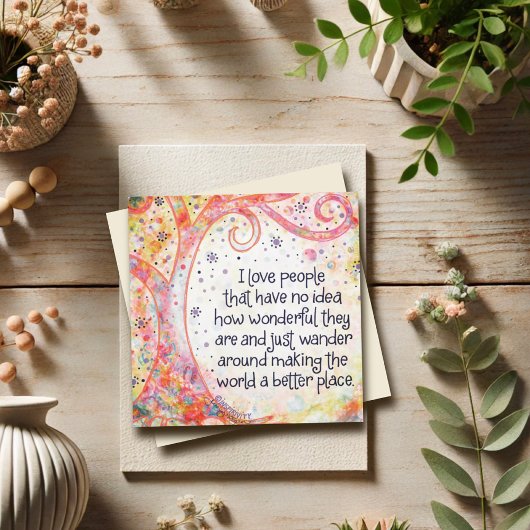 I love people
that have no idea
how wonderful they
are and just wander
around making the
world a better place.